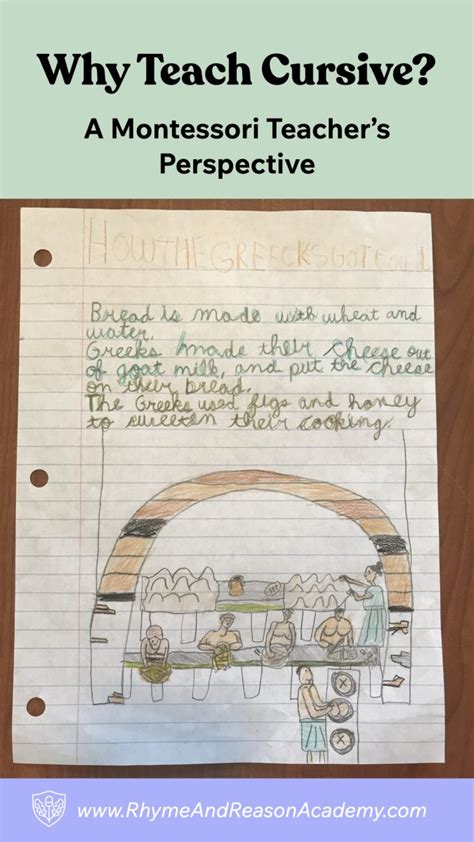 Why Teach Cursive?
A Montessori Teacher's
Perspective
HOW THE GREECKS GOT
Bread is made with wheat and
water.
Greeks made their cheese out
of goat milk, and put the cheese
on their bread.
The Greeks used figs and honey
to sweeten their cooking.
www.RhymeAndReasonAcademy.com